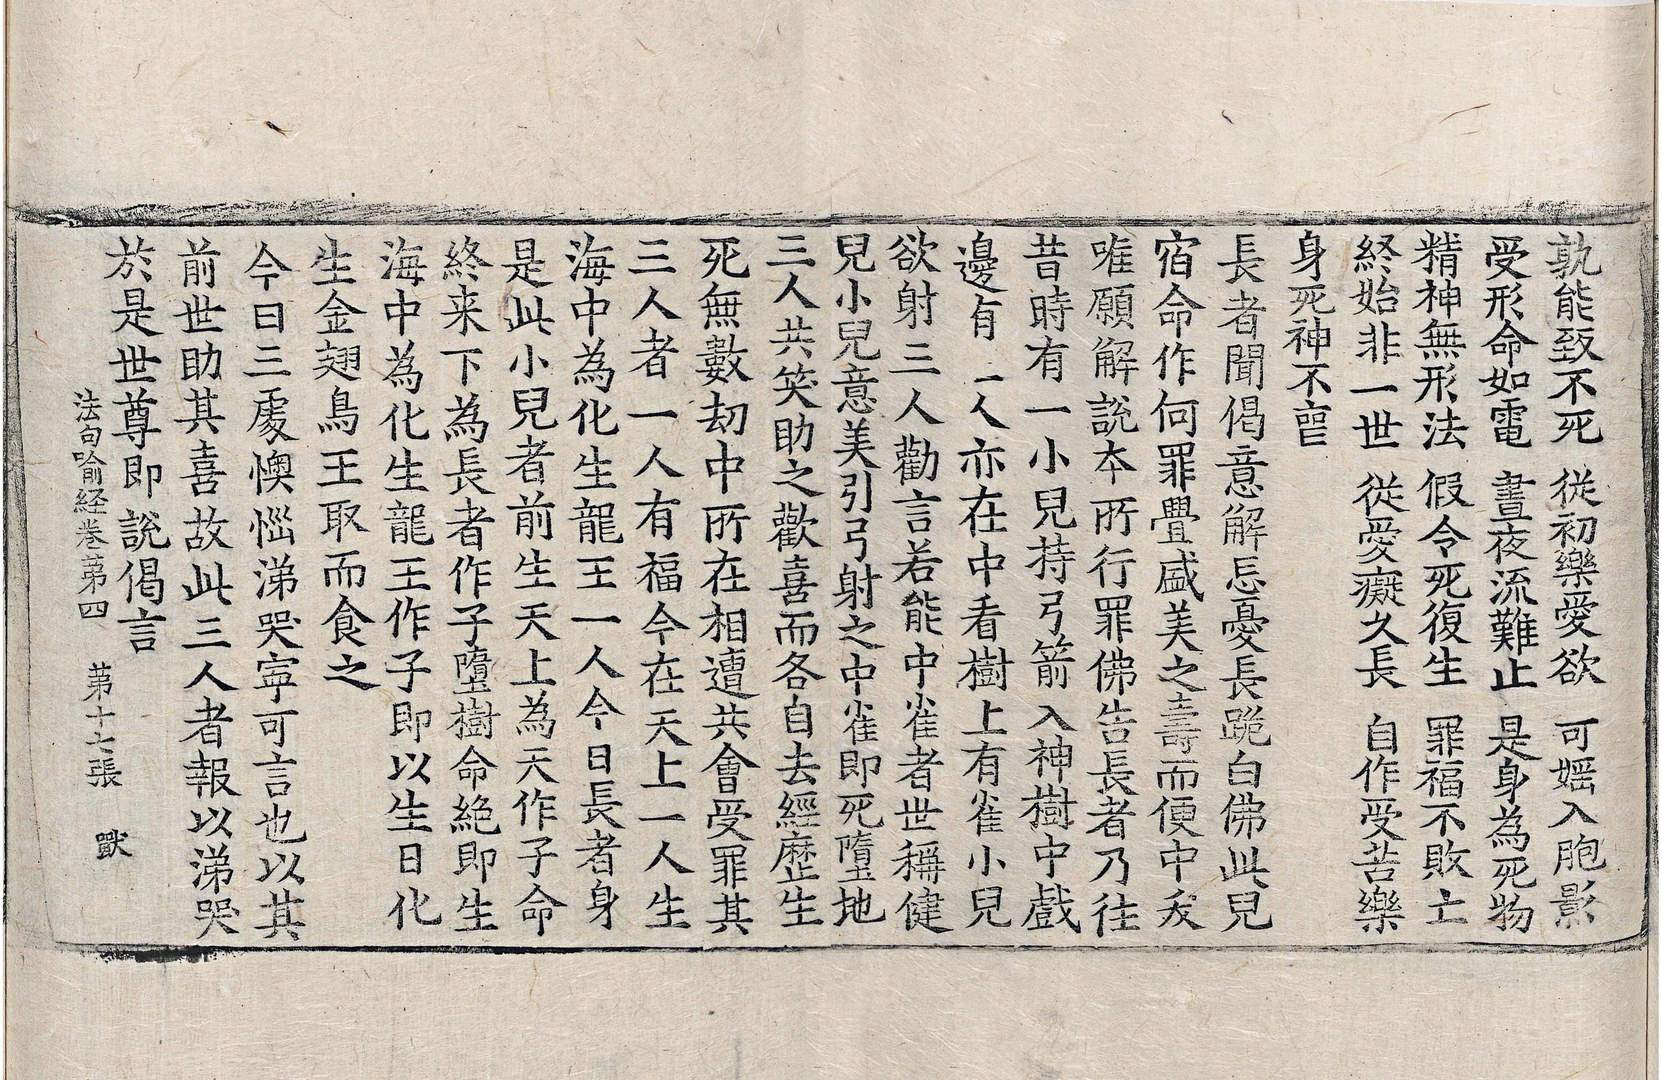 孰能致不死　從初樂愛欲　可婬入胞影
受形命如電　晝夜流難止　是身為死物
精神無形法　假令死復生　罪福不敗亡
終始非一世　從愛癡久長　自作受苦樂
身死神不喪
長者聞偈意解忘憂長跪白佛此兒
宿命作何罪舋盛美之壽而便中夭
唯願解說本所行罪佛告長者乃往
昔時有一小兒持弓箭入神樹中戲
邊有三人亦在中看樹上有雀小兒
欲射三人勸言若能中雀者世稱健
兒小兒意美引弓射之中雀即死墮地
三人共笑助之歡喜而各自去經歷生
死無數劫中所在相遭共會受罪其
三人者一人有福今在天上一人生
海中為化生龍王一人今日長者身
是此小兒者前生天上為天作子命
終来下為長者作子墮樹命絕即生
海中為化生龍王作子即以生日化
生金翅鳥王取而食之
今日三處懊惱涕哭寧可言也以其
前世助其喜故此三人者報以涕哭
於是世尊即說偈言
法句喻経卷第四　第十七張　獸